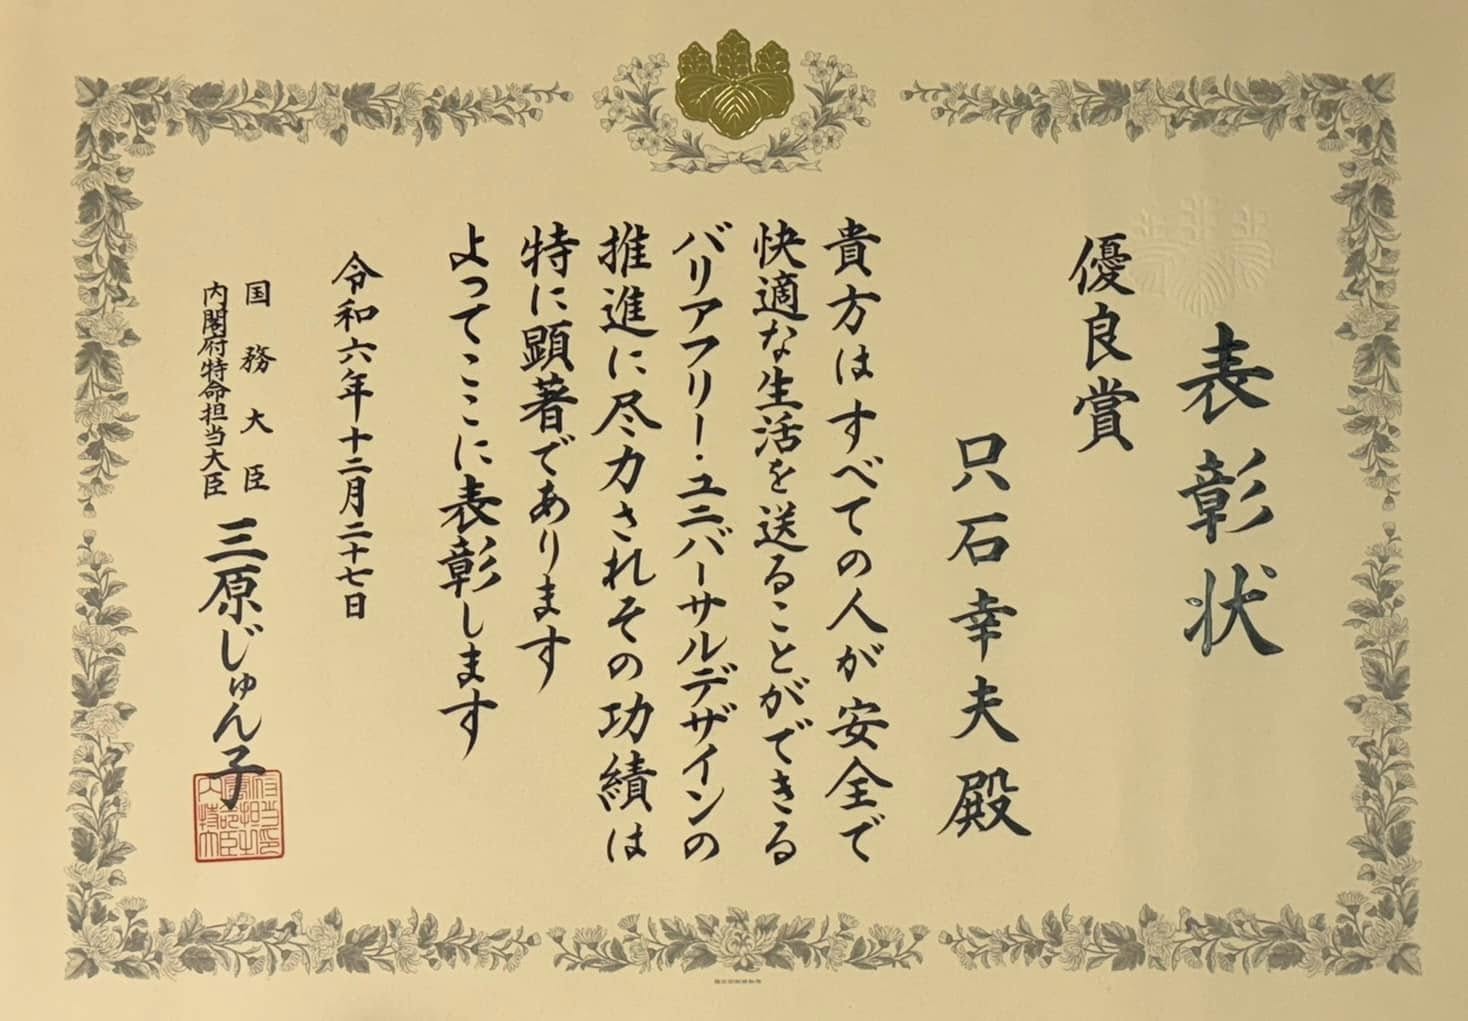 表彰状
優良賞
只石幸夫殿
貴方はすべての人が安全で
快適な生活を送ることができる
バリアフリー・ユニバーサルデザインの
推進に尽力されその功績は
特に顕著であります
よってここに表彰します
令和六年十二月二十七日
国務大臣
内閣府特命担当大臣
三原じゅん子